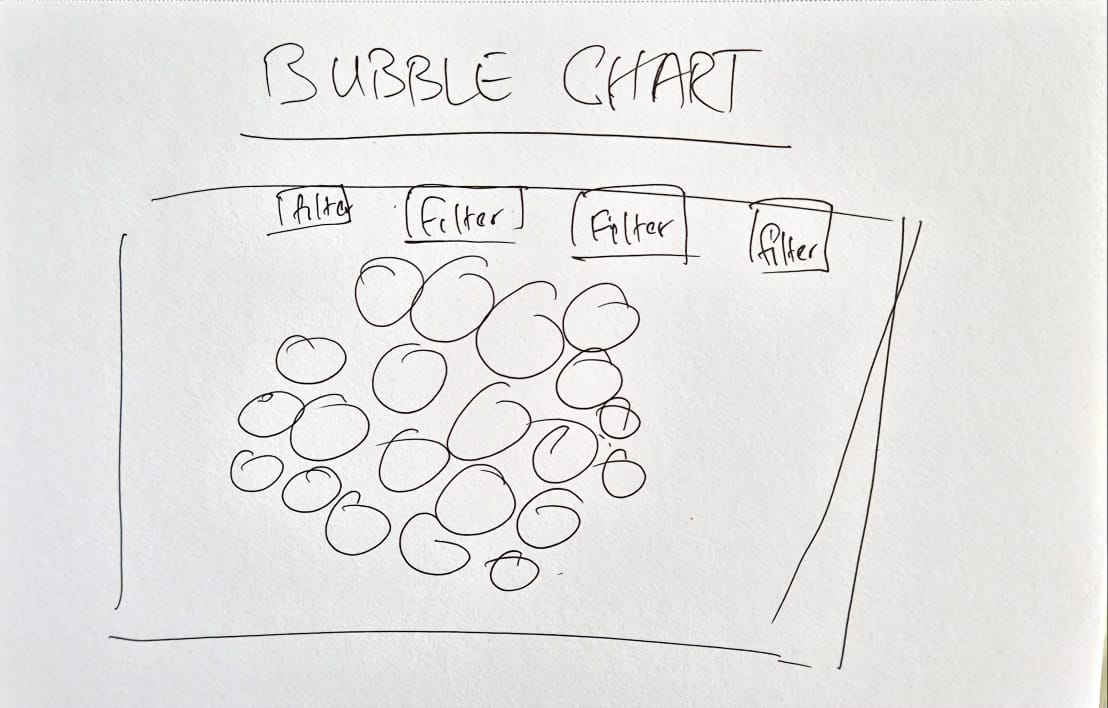 BUBBLE CHART
filter Filter Filter filter